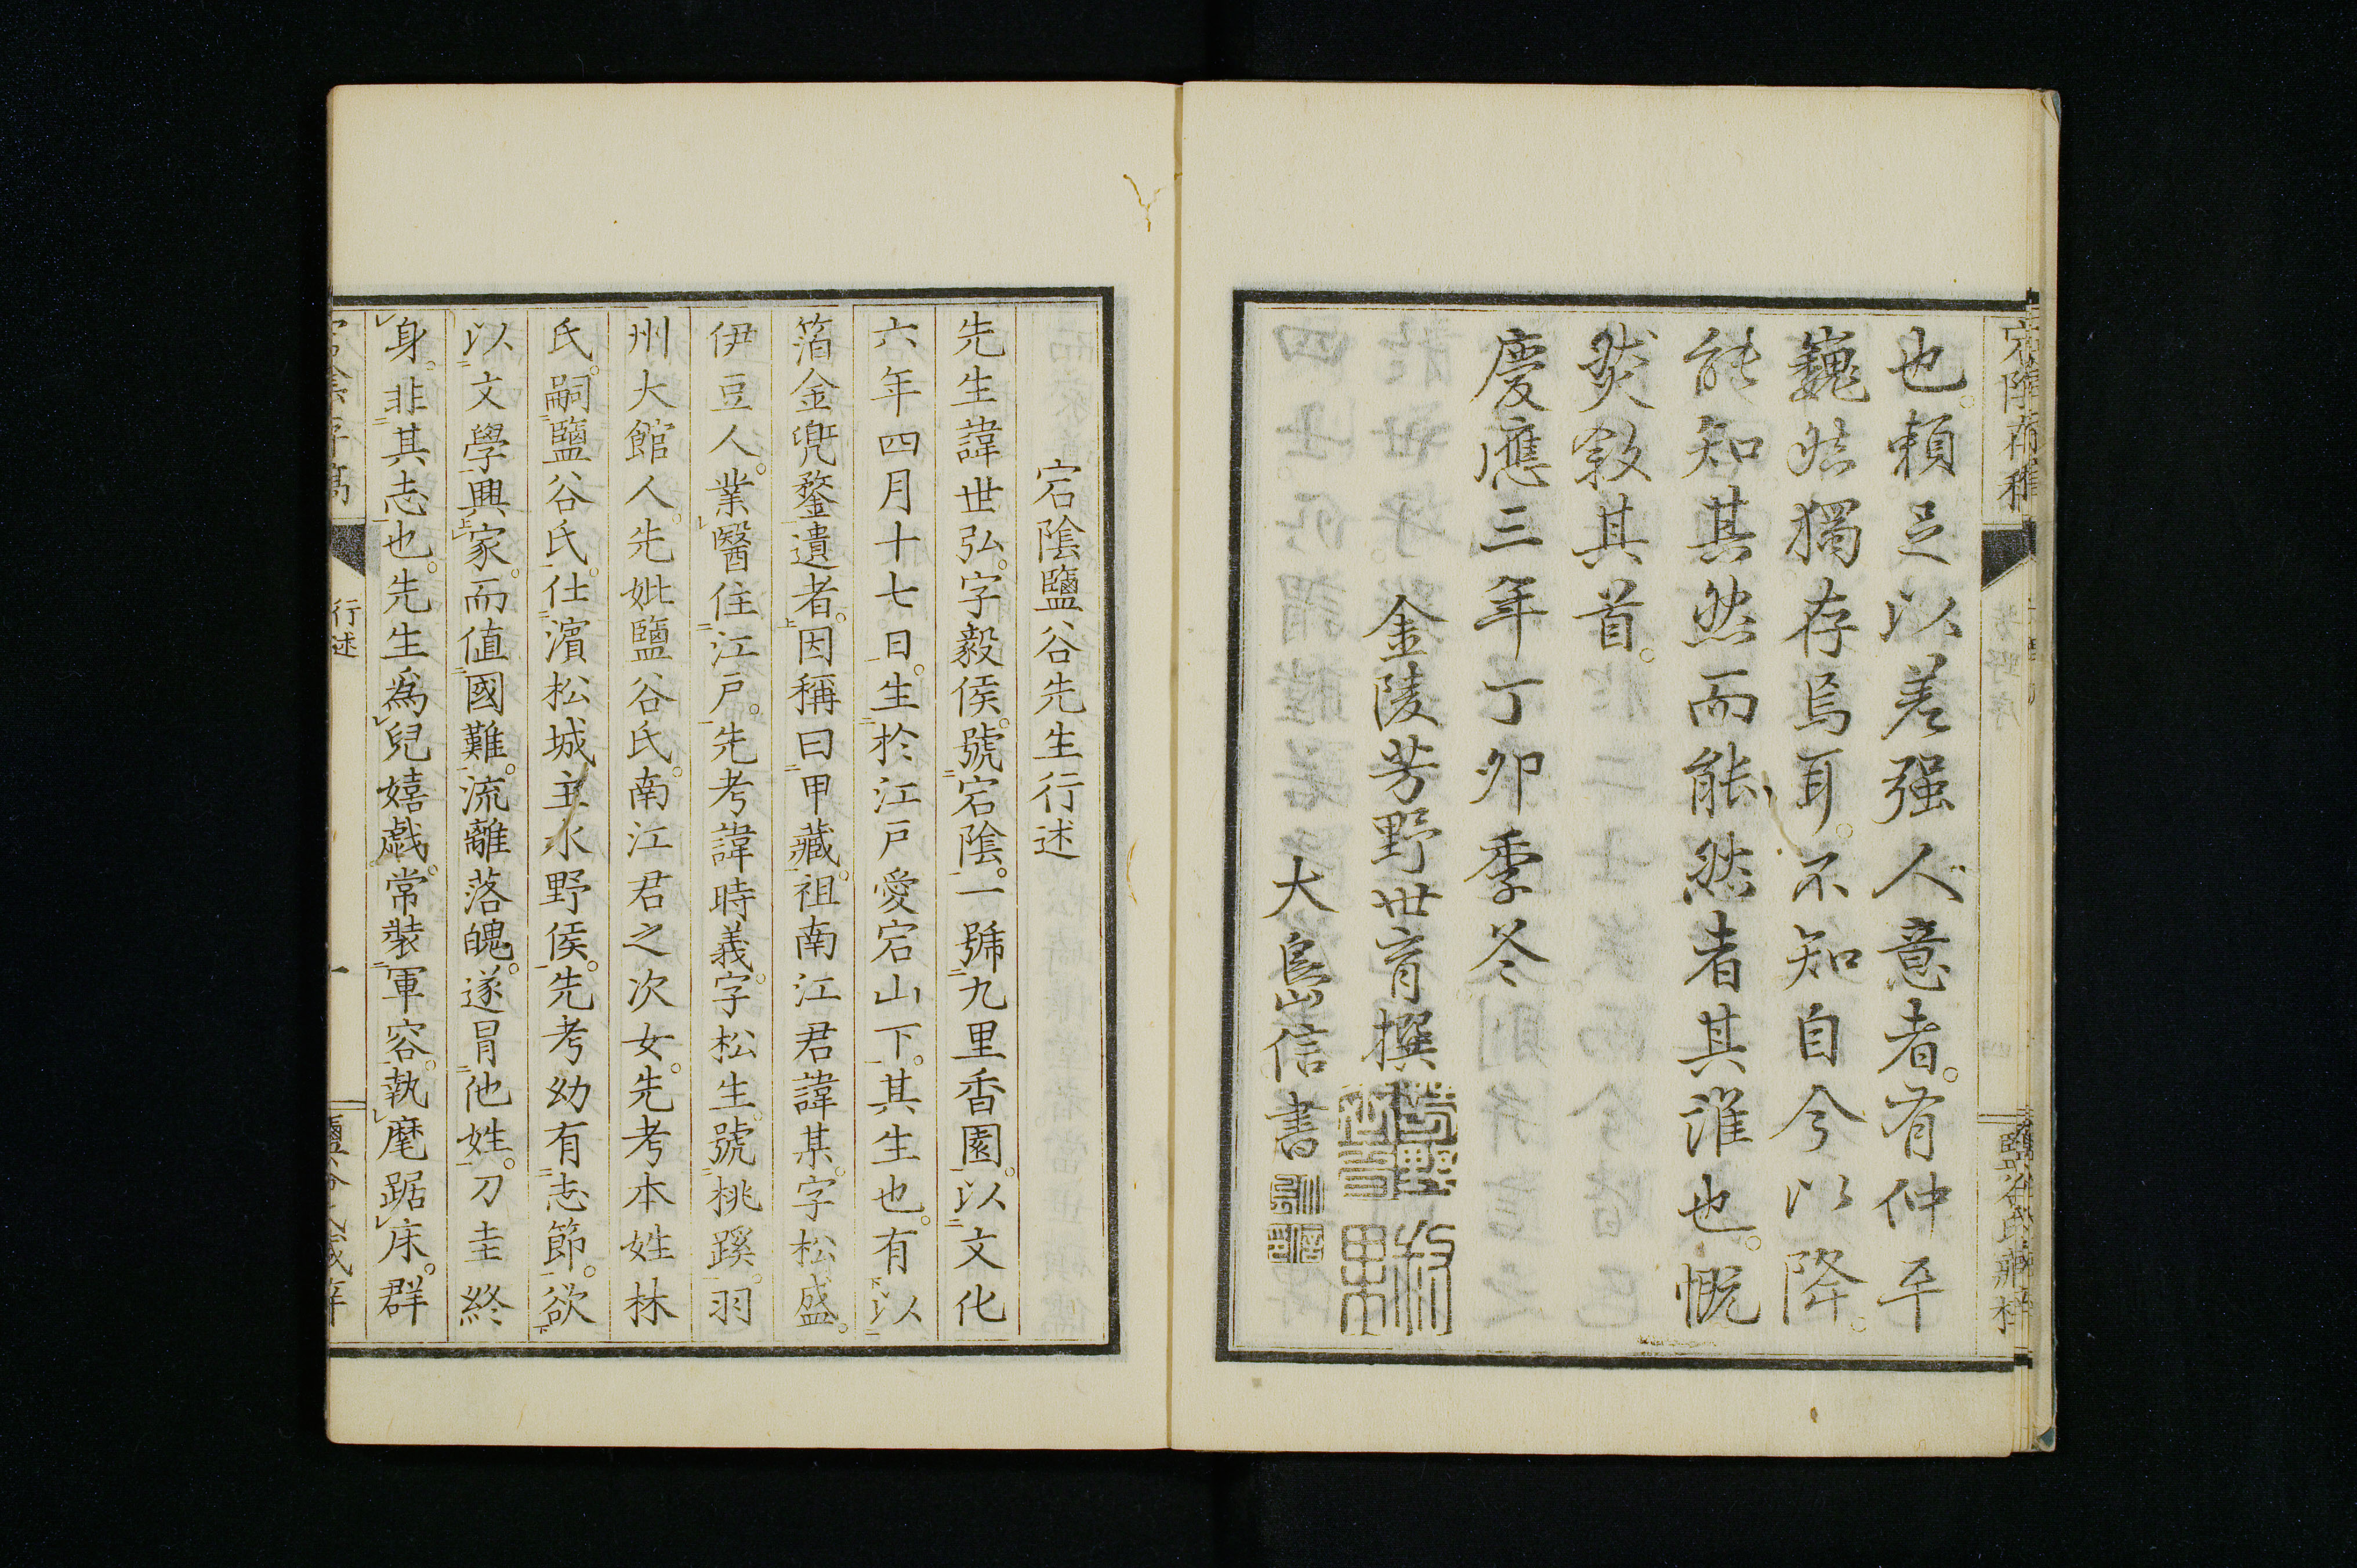 也。頼足以差强人意者。有仲平
巍然獨存焉耳。不知自今以降。
能知其然而能然者其誰也。慨
然敘其首。
慶應三年丁卯季冬
金陵芳野世育撰
大島信書
宕陰鹽谷先生行述
先生諱世弘。字毅侯。號宕陰。一號九里香園。以文化
六年四月十七日。生於江戸愛宕山下。其生也。有以
箔金兜鍪遺者。因稱曰甲藏。祖南江君諱某。字松盛。
伊豆人。業醫住江戸。先考諱時義。字松生。號桃蹊。羽
州大館人。先妣鹽谷氏。南江君之次女。先考本姓林
氏。嗣鹽谷氏。仕濱松城主水野侯。先考幼有志節。欲
以文學興家。而値國難。流離落魄。遂冐他姓。刀圭終
身。非其志也。先生爲兒嬉戯。常裝軍容。執麾踞床。群
行述
一